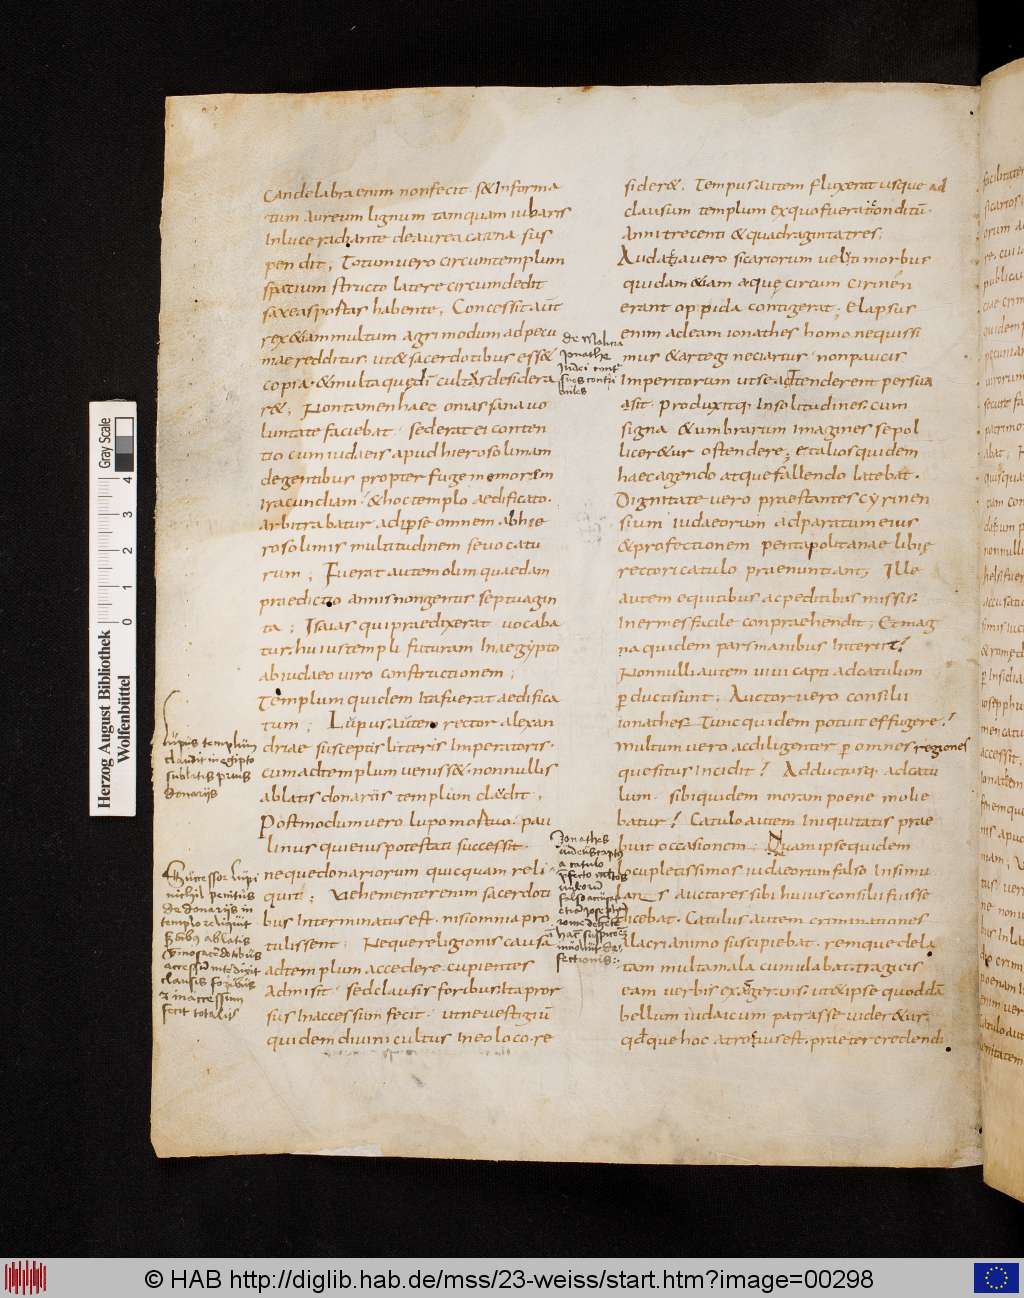 Candelabra enim non fecit. s& Informa
tum aureum lignum tamquam iubaris
In luce radiante de aurea catena sus
pendit; Totum vero circum templum
spatium structo latere circumdedit
saxeas postas habente, Concessit aut̄
rex &iam multum agri modum ad pecu
niae redditus. ut & sacerdotibus ess&
copia. & multa que dī cultus desidera
r&, Non tamen haec onias sana vo
luntate faciebat. sed erat ei conten
tio cum iudaeis apud hierosolimam
degentibus propter fuge memorem
Iracundiam. & hoc templo aedificato.
arbitrabatur ad ipse omnem ab hie
rosolimis multitudinem sevocatu
rum; Fuerat autem olim quaedam
praedictio annis nongentis septuagin
ta; Isaias qui praedixerat vocaba
tur. huius templi futuram In aegypto
ab iudaeo viro constructionem;
Templum quidem Ita fuerat aedifica
tum; Lupus autem rector alexan
driae susceptis litteris Imperatoris.
cum ad templum veniss& nonnullis
ablatis donariis templum cludit,
Postmodum vero lupo mortuo. pau
linus qui eius potestati successit.
neque donariorum quicquam reli
quit; Vehementer enim sacerdoti
bus Interminatus est. nisi omnia pro
tulissent; Neque religionis causa
ad templum accedere cupientes
admisit. sed clausis foribus Ita pror
sus Inaccessum fecit. ut ne vestigiū
quidem divini cultus In eo loco re
sider&. Tempus autem fluxerat usque ad
clausum templum ex quo fuerat conditū.
Anni trecenti & quadraginta tres;
Audacia vero sicariorum velut morbus
quidam &iam aeque circum cirinen
erant oppida contigerat; Elapsus
enim ad eam ionathes homo nequissi
mus & arte gi neciarius. non paucis
Imperitorum ut se adtenderent persua
sit. produxitq; In solitudines. cum
signa & umbrarum Imagines se pol
licer&ur ostendere; et alios quidem
haec agendo atque fallendo latebat.
Dignitate vero praestantes cyrinen
sium iudaeorum adparatum eius
& profectionem pentapolitanae libię
rectori catulo praenuntiant; Ille
autem equitibus ac peditibus missis.
Inermes facile conpraehendit; Et mag
na quidem pars manibus Interiit?
Nonnulli autem vivi capti ad catulum
p ductisunt; Auctor vero consilii
ionathes. Tunc quidem potuit effugere?
multum vero ac diligenter p omnes regiones
quesitus Incidit? Adductusq. ad catu
lum. sibi quidem moram poene molie
batur? Catulo autem Iniquitatis prae
buit occasionem. Quam ipse quidem
locupletissimos iudaeorum falso Insimu
lans auctores sibi huius consilii fuisse
dicebat. Catulus autem criminationes
alacri animo suscipiebat. remque dela
tam multa mala cumulabat. tragicis
eam verbis exaggerans. ut & ipse quoddā
bellum iudaicum patrasse vider&ur.
qdque hoc atrocius est. praeter credendi
de Malicia
Jonathe
Judei contra
suos contri
bules
Lupus templum
claudit in egipto
sublatis prius
donariis
Successor lupi
nichil penitus
de donariis in
templo reliquit
ablatis
sacerdotibus
accessum interdixit
clausis foribus
& inaccessum
fecit totaliter
Jonathes
iudeus captus
a catulo
falso accusat
etiam Josephum
rome degentem
fectionis:.
Herzog August Bibliothek
Wolfenbüttel
0 1 2 3 4
Gray Scale
© HAB http://diglib.hab.de/mss/23-weiss/start.htm?image=00298